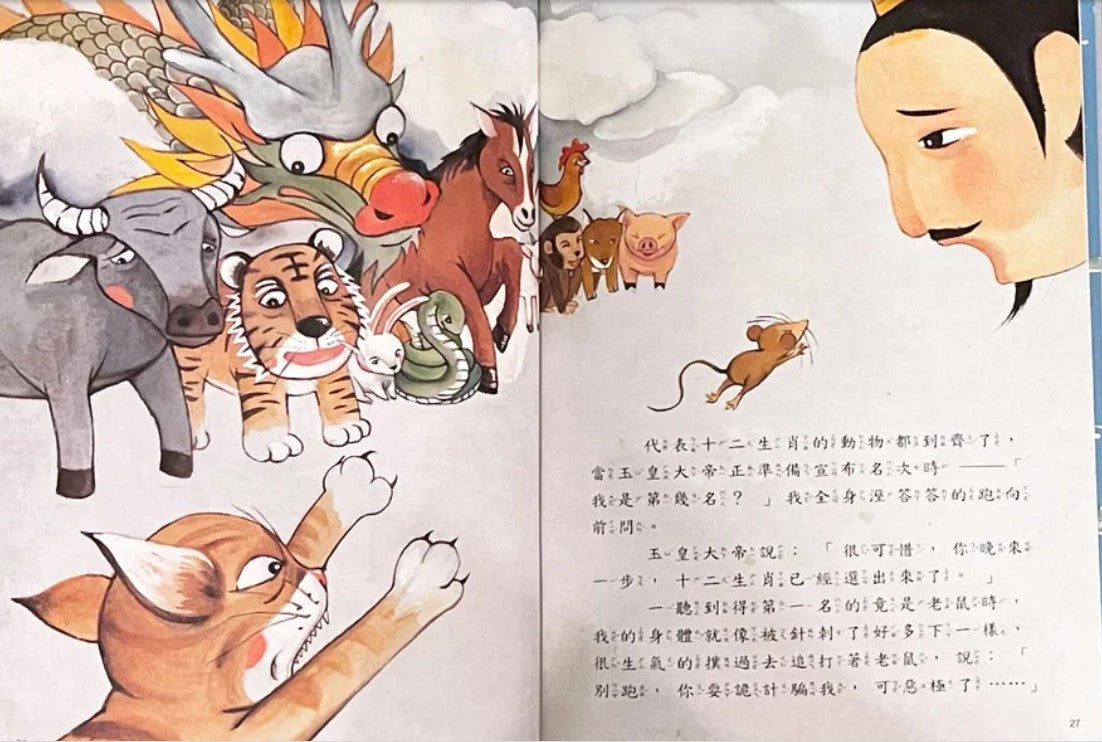 代表十二生肖的動物都到齊了，
當玉皇大帝正準備宣布名次時——「
我是第幾名？」我全身溼答答的跑向
前問。
玉皇大帝說：「很可惜，你晚來
一步，十二生肖已經選出來了。」
一聽到得第一名的竟是老鼠時，
我的身體就像被針刺了好多下一樣，
很生氣的撲過去追打著老鼠，說：「
別跑，你耍詭計騙我，可惡極了……」
27